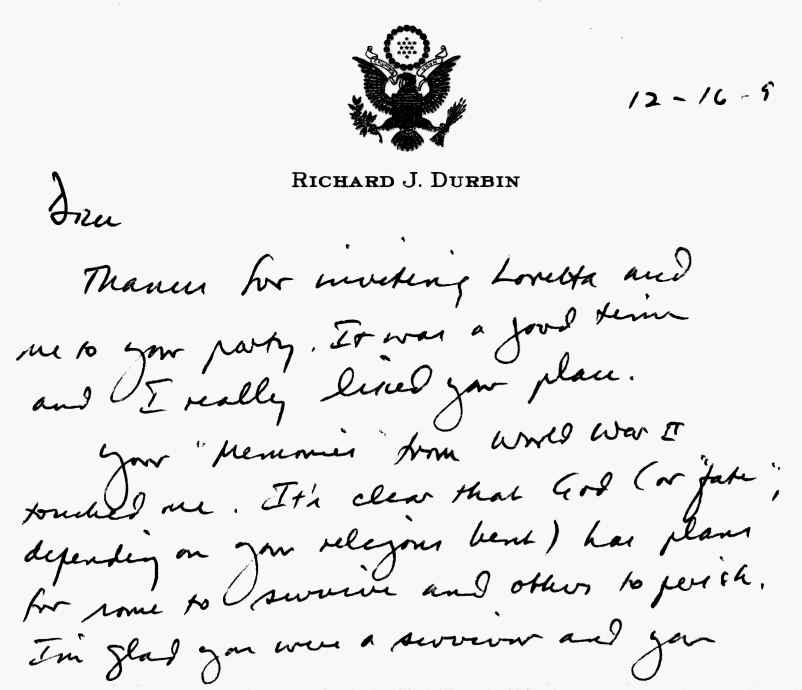 12-16-9
RICHARD J. DURBIN
Thanks for inviting Loretta and
me to your party. It was a good time
and I really liked your place.
Your "Memories" from World War II
touched me. It's clear that God (or "fate",
depending on your religious bent) has plans
for some to survive and others to perish.
I'm glad you were a survivor and your